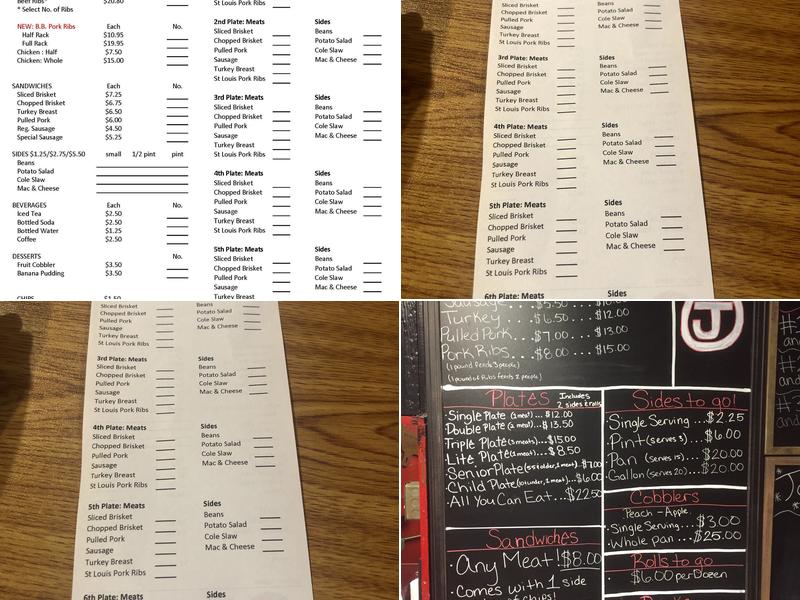 Beef Ribs* $20.80
* Select No. of Ribs
NEW: B.B. Pork Ribs Each No.
Half Rack $10.95
Full Rack $19.95
Chicken : Half $7.50
Chicken: Whole $15.00
SANDWICHES Each No.
Sliced Brisket $7.25
Chopped Brisket $6.75
Turkey Breast $6.50
Pulled Pork $6.00
Reg. Sausage $4.50
Special Sausage $5.25
SIDES $1.25/$2.75/$5.50 small 1/2 pint pint
Beans
Potato Salad
Cole Slaw
Mac & Cheese
BEVERAGES Each No.
Iced Tea $2.50
Bottled Soda $2.50
Bottled Water $1.25
Coffee $2.50
DESSERTS No.
Fruit Cobbler $3.50
Banana Pudding $3.50
CHIPS $1.50
St Louis Pork Ribs
2nd Plate: Meats Sides
Sliced Brisket Beans
Chopped Brisket Potato Salad
Pulled Pork Cole Slaw
Sausage Mac & Cheese
Turkey Breast
St Louis Pork Ribs
3rd Plate: Meats Sides
Sliced Brisket Beans
Chopped Brisket Potato Salad
Pulled Pork Cole Slaw
Sausage Mac & Cheese
Turkey Breast
St Louis Pork Ribs
4th Plate: Meats Sides
Sliced Brisket Beans
Chopped Brisket Potato Salad
Pulled Pork Cole Slaw
Sausage Mac & Cheese
Turkey Breast
St Louis Pork Ribs
5th Plate: Meats Sides
Sliced Brisket Beans
Chopped Brisket Potato Salad
Pulled Pork Cole Slaw
Sausage Mac & Cheese
Turkey Breast
Sliced Brisket Beans
Chopped Brisket Potato Salad
Pulled Pork Cole Slaw
Sausage Mac & Cheese
Turkey Breast
St Louis Pork Ribs
3rd Plate: Meats Sides
Sliced Brisket Beans
Chopped Brisket Potato Salad
Pulled Pork Cole Slaw
Sausage Mac & Cheese
Turkey Breast
St Louis Pork Ribs
4th Plate: Meats Sides
Sliced Brisket Beans
Chopped Brisket Potato Salad
Pulled Pork Cole Slaw
Sausage Mac & Cheese
Turkey Breast
St Louis Pork Ribs
5th Plate: Meats Sides
Sliced Brisket Beans
Chopped Brisket Potato Salad
Pulled Pork Cole Slaw
Sausage Mac & Cheese
Turkey Breast
St Louis Pork Ribs
6th Plate: Meats Sides
Sliced Brisket Beans
Chopped Brisket Potato Salad
Pulled Pork Cole Slaw
Sausage Mac & Cheese
Turkey Breast
St Louis Pork Ribs
3rd Plate: Meats Sides
Sliced Brisket Beans
Chopped Brisket Potato Salad
Pulled Pork Cole Slaw
Sausage Mac & Cheese
Turkey Breast
St Louis Pork Ribs
4th Plate: Meats Sides
Sliced Brisket Beans
Chopped Brisket Potato Salad
Pulled Pork Cole Slaw
Sausage Mac & Cheese
Turkey Breast
St Louis Pork Ribs
5th Plate: Meats Sides
Sliced Brisket Beans
Chopped Brisket Potato Salad
Pulled Pork Cole Slaw
Sausage Mac & Cheese
Turkey Breast
St Louis Pork Ribs
6th Plate: Meats Sides
Sausage $5.50
Turkey $6.50 ... $12.00
Pulled Pork... $7.00 ... $13.00
Pork Ribs ... $8.00 ... $15.00
(1 pound feeds 3 people)
(1 pound of Ribs feeds 2 people)
J
Plates Includes 2 sides & rolls
Single Plate (1 meat)... $12.00
Double Plate (2 meat)... $13.50
Triple Plate (3 meats)... $15.00
Lite Plate (1 meat)... $8.50
Senior Plate (55 & older, 1 meat).. $7.00
Child Plate (10 & under, 1 meat)... $6.00
All You Can Eat... $22.50
Sandwiches
Any Meat! $8.00
Comes with 1 side
of chips!
Sides to go!
Single Serving... $2.25
Pint (serves 3)... $6.00
Pan (serves 15)... $20.00
Gallon (serves 20)... $20.00
Cobblers
Peach - Apple
Single Serving.... $3.00
Whole pan.... $25.00
Rolls to go
$6.00 per Dozen